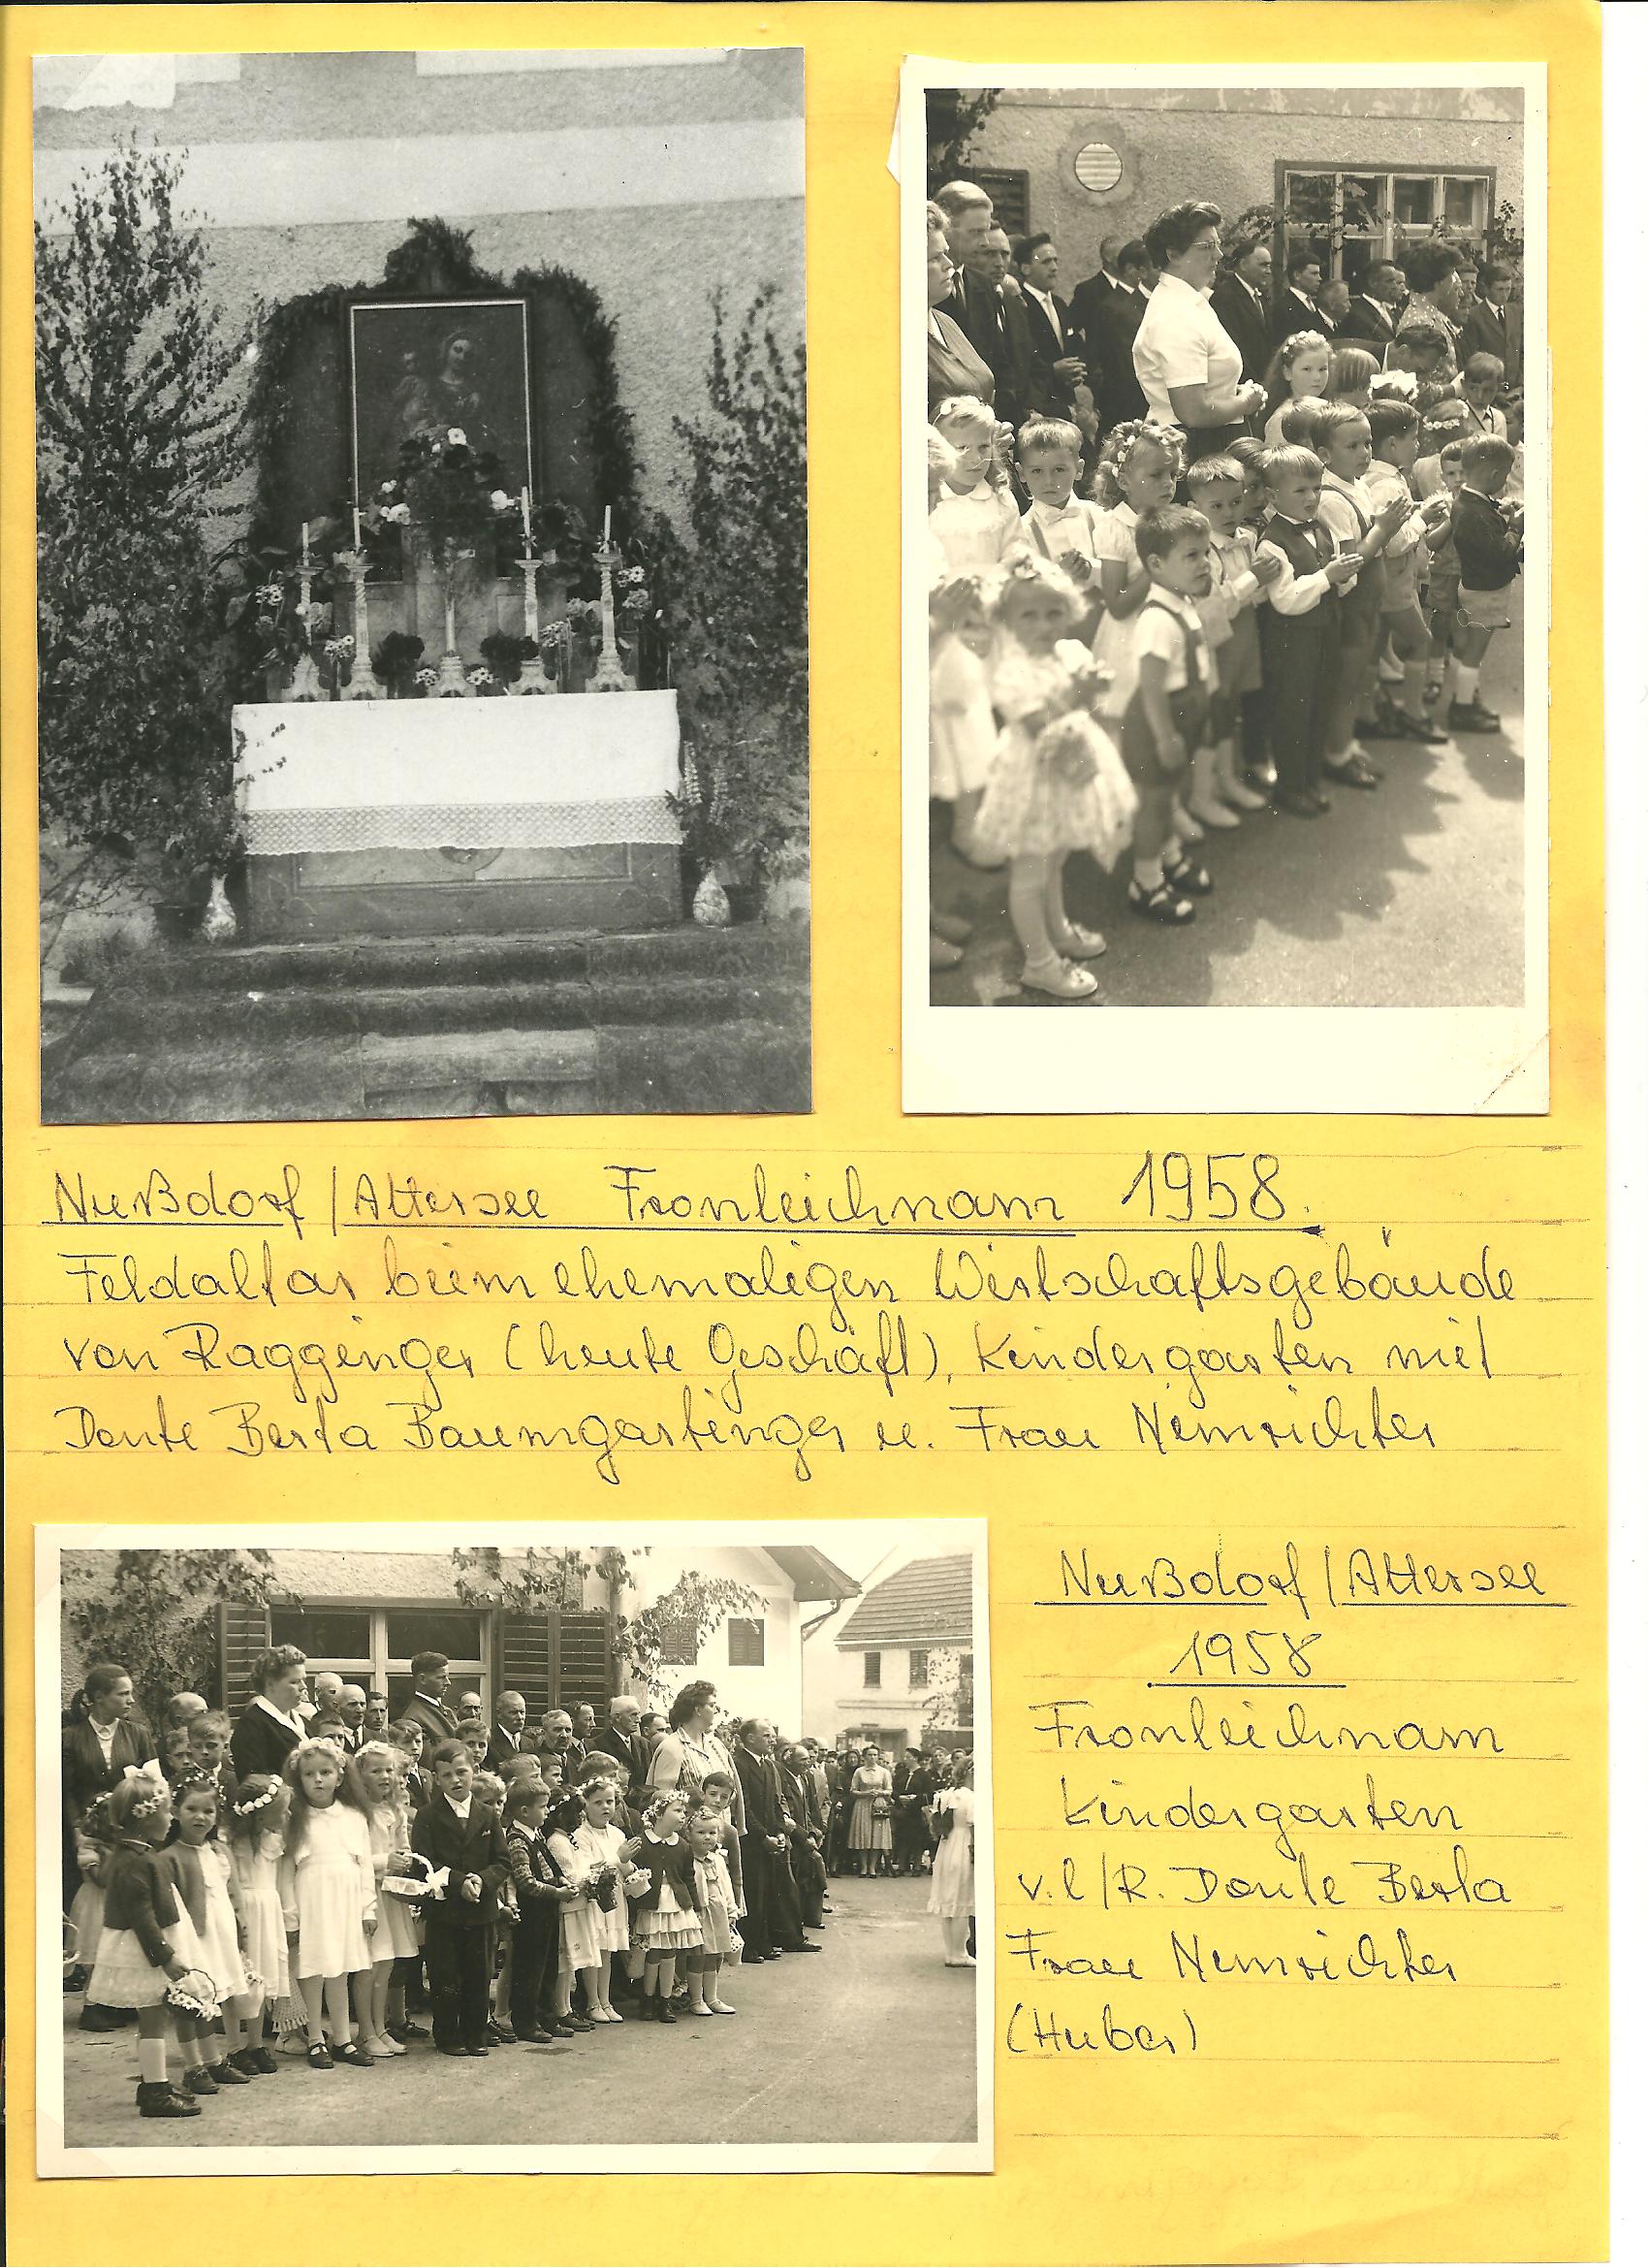 Nußdorf/Attersee Fronleichnam 1958.
Feldaltar beim ehemaligen Wirtschaftsgebäude
von Ragginger (heute Geschäft), Kindergarten mit
Dante Berta Baumgartinger u. Frau Nemrichter
Nußdorf/Attersee
1958
Fronleichnam
Kindergarten
v.l/R. Dante Berta
Frau Nemrichter
(Huber)